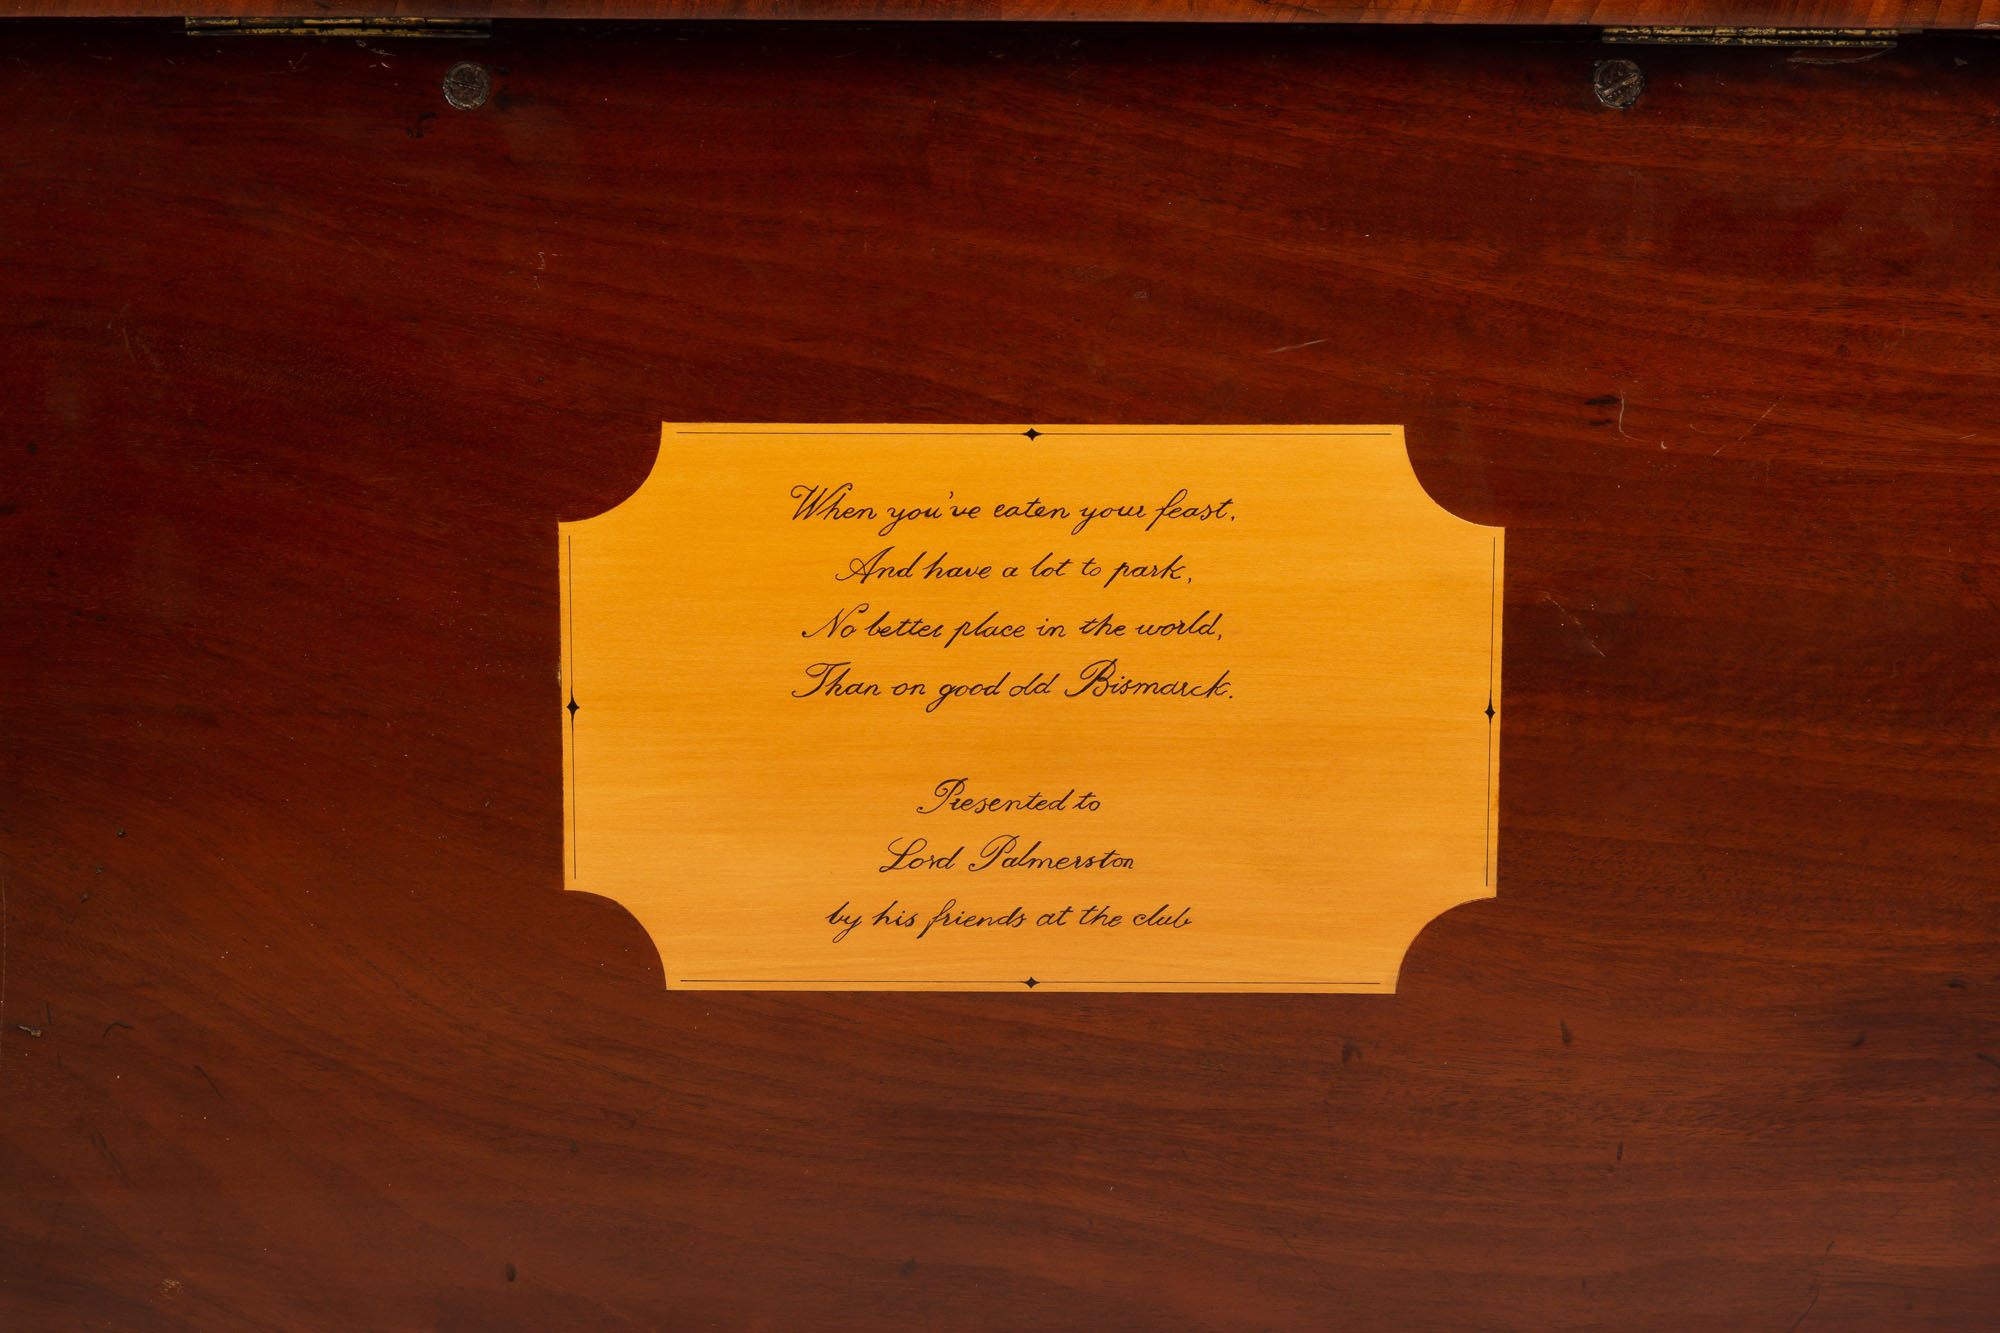 When you've eaten your feast,
And have a lot to park,
No better place in the world,
Than on good old Bismarck.
Presented to
Lord Palmerston
by his friends at the club